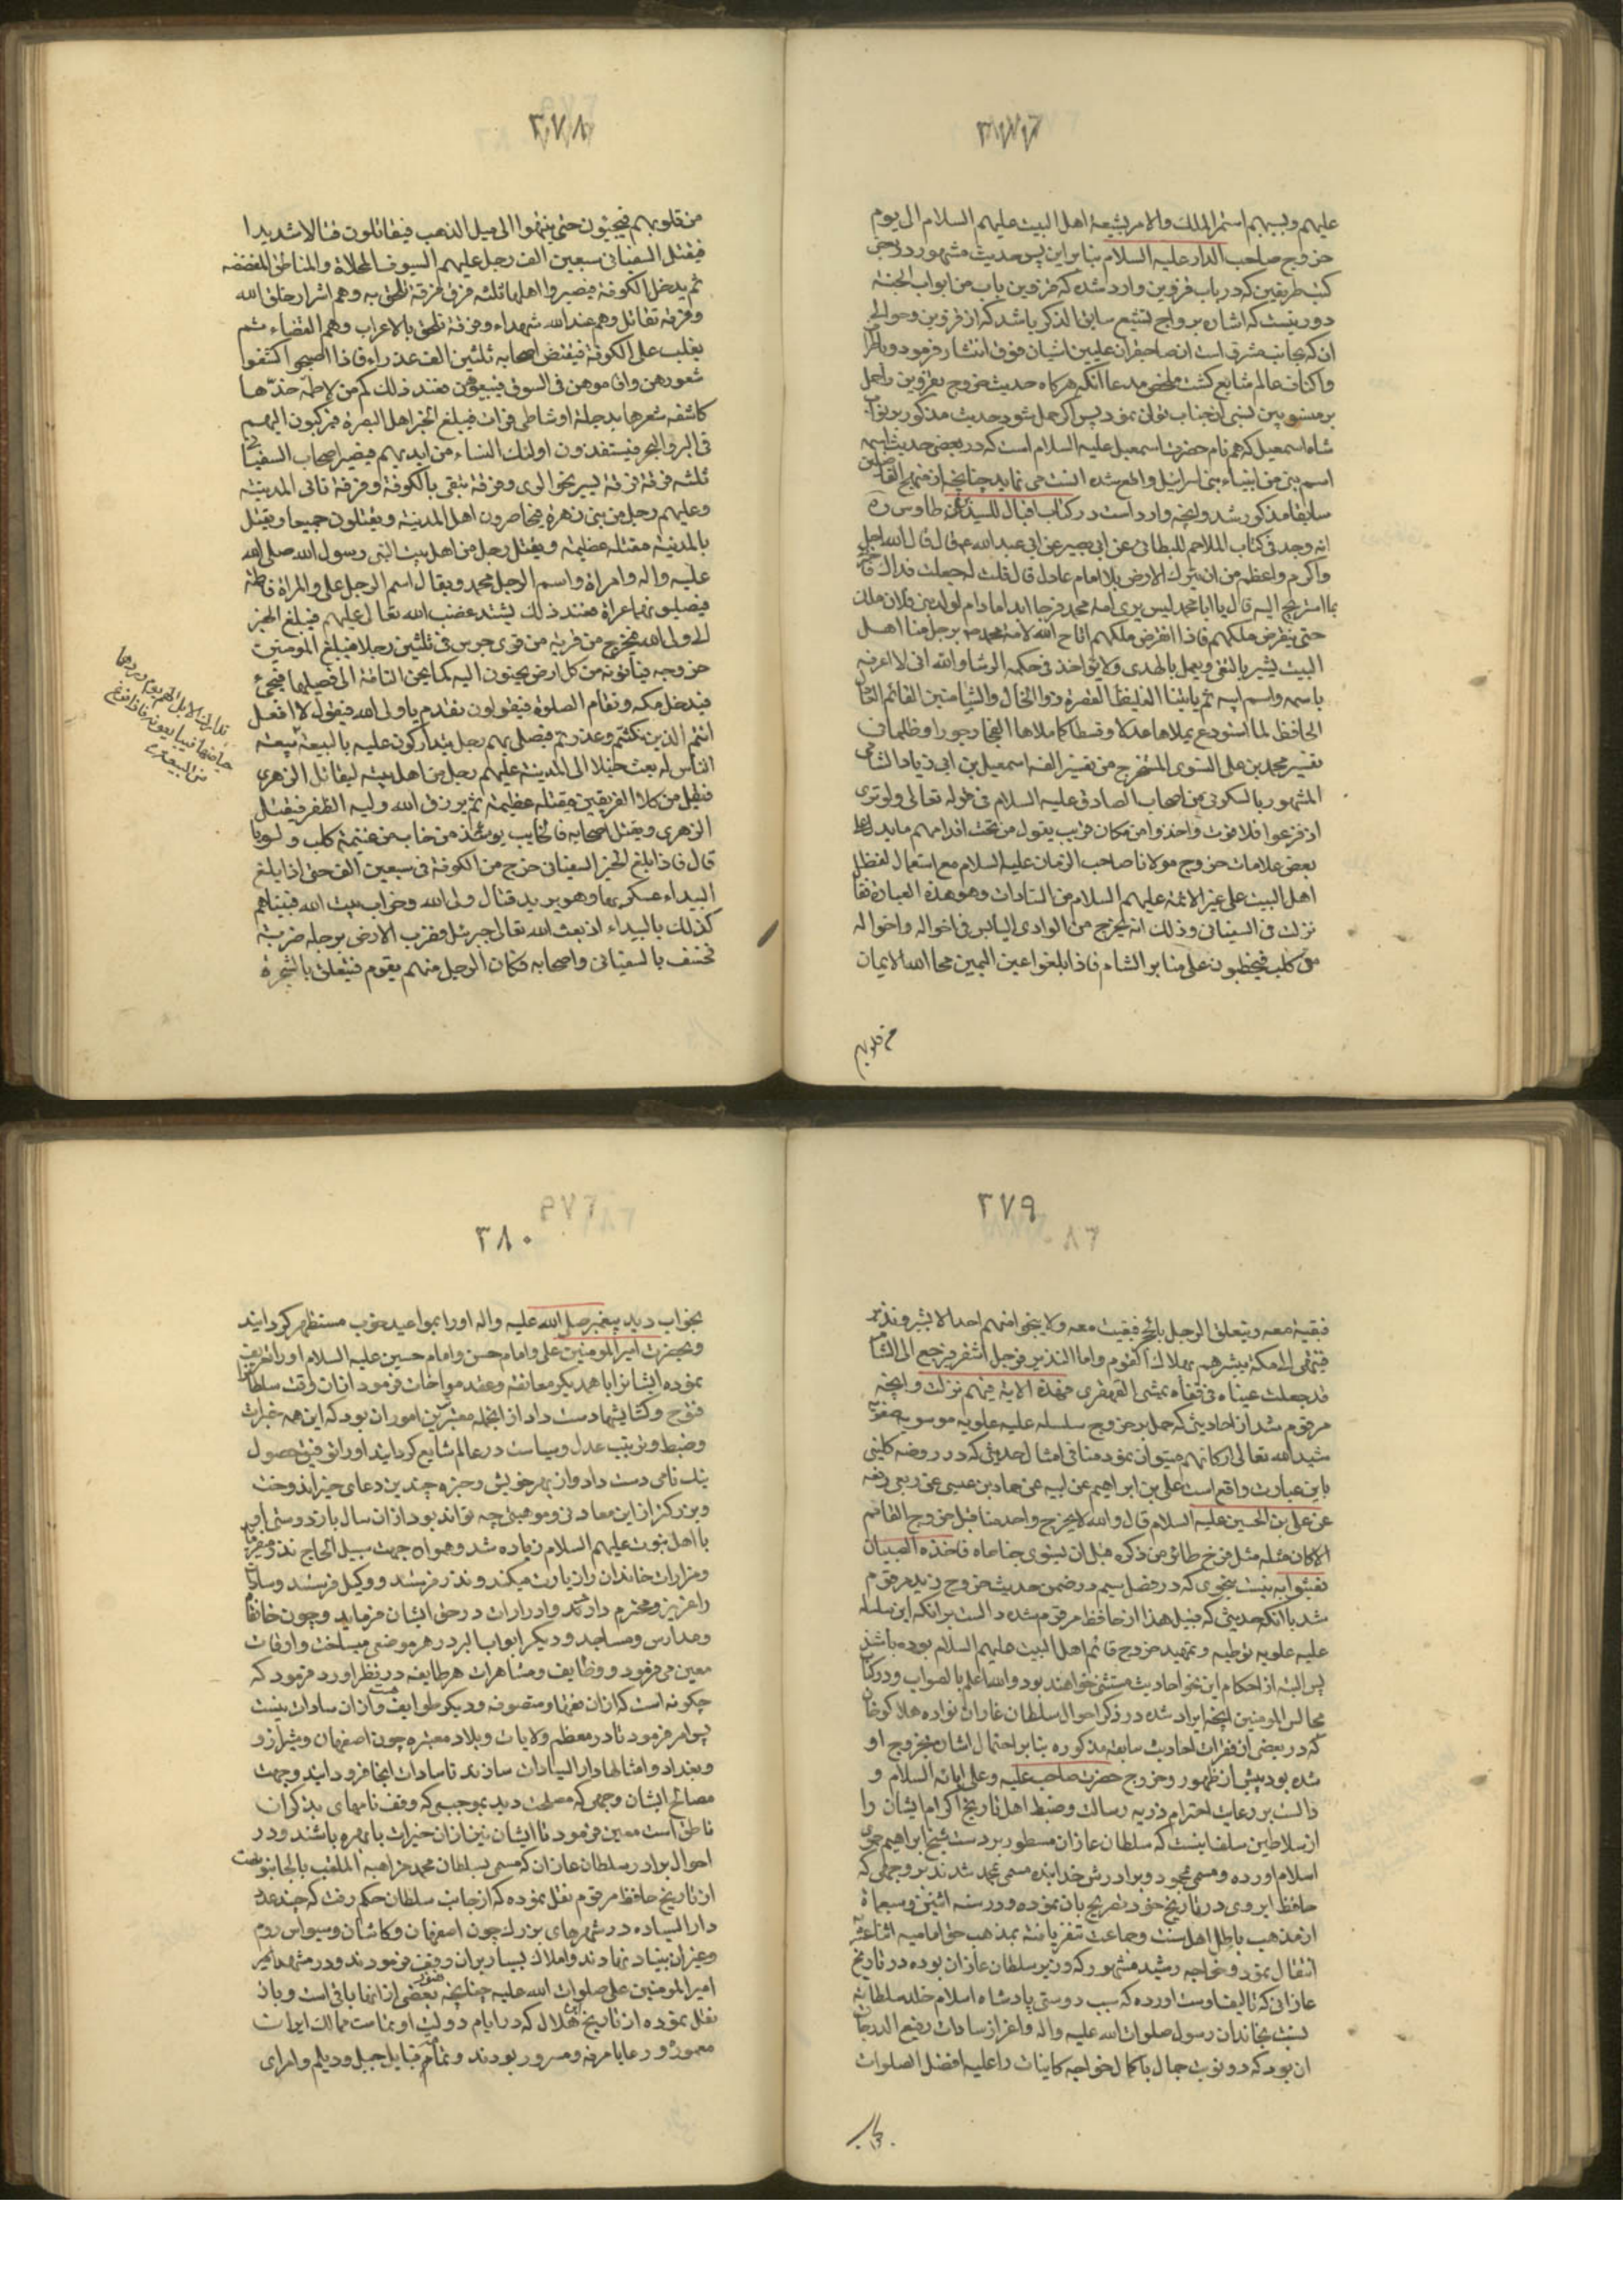 ۳۷۷
علیهم ویسبهم استمر الملک والامر لشیعة اهل البیت علیهم السلام الی یوم
خروج صاحب الدار علیه السلام بنابراین پس حدیث مشهور در
کتب طریقین که در باب قزوین وارد شده که قزوین باب من ابواب الجنة
دور نیست که اشاره برواج تشیع سابق الذکر باشد که از قزوین وحوالی
ان که بجانب مشرق است ان صاحبقران علیین اشیان فوق انتشار فرمود
واکناف عالم شایع کشت ملخص مدعا انکه هرکاه حدیث خروج بقزوین راحمل
بر منسوبین لنبی ان جناب توان نمود پس اکر حمل شود حدیث مذکور بر نواب
شاه اسمعیل که هم نام حضرت اسمعیل علیه السلام است که در بعضی حدیث اسمه
اسم نبی من انبیاء بنی اسرائیل واقع شده انسب می نماید چنانچه از منهج الفاضلین
سابقا مذکور شد وانچه وارد است در کتاب اقبال للسید علی طاوس ره
انه وجد فی کتاب الملاحم للبطائنی عن ابی بصیر عن ابی عبدالله ع قال قال الله اجل
واکرم واعظم من ان یترک الارض بلا امام عادل قال قلت له جعلت فداک
بما استریح الیه قال یا ابا محمد لیس یری امة محمد فرجا ابدا مادام لولد بنی فلان ملک
حتی ینقرض ملکهم فاذا انقرض ملکهم اتاح الله لامة محمد برجل منا اهل
البیت یشیر بالتقی ویعمل بالهدی ولا یاخذ فی حکمه الرشا والله انی لاعرفه
باسمه واسم ابیه ثم یاتینا الغلیظ القصرة ذو الخال والشامتین القائم العادل
الحافظ لما استودع یملاها عدلا وقسطا کما ملاها الفجار جورا وظلما
تفسیر محمد بن علی النسوی المستخرج من تفسیر الفه اسمعیل بن ابی زیاد الشامی
المشهور بالسکونی من اصحاب الصادق علیه السلام فی قوله تعالی ولو تری
اذ فزعوا فلا فوت واخذوا من مکان قریب یقول من تحت اقدامهم ما یدل علی
بعض علامات خروج مولانا صاحب الزمان علیه السلام مع استعمال لفظ
اهل البیت علی غیر الائمة علیهم السلام من السادات وهو هذه العبارة
نزلت فی السفیانی وذلک انه یخرج من الوادی الیابس فی اخواله واخواله
من کلب فیخطبون علی منابر الشام فاذا بلغوا عین الیمین محا الله الایمان
من قلوبهم
۳۷۸
من قلوبهم فیجیئون حتی ینتهوا الی میل الذهب فیقاتلون قتالا شدیدا
فیقتل السفیانی سبعین الف رجل علیهم السیوف المحلاة والمناطق المفضضه
ثم یدخل الکوفة فیصیروا اهلها ثلثه فرق فرقة تلحق به وهم اشرار خلق الله
وفرقة تقاتل وهم عند الله شهداء وفرقة تلحق بالاعراب وهم العصاء ثم
یغلب علی الکوفة فیفتض اصحابه ثلثین الف عذراء فاذا اصبحوا کشفوا
شعورهن واقاموهن فی السوق فیبیعوهن فعند ذلک کم من لاطمة خدها
کاشفه شعرها بدجلة او شاطی فرات فیبلغ الخبر اهل البصرة فیرکبون الیهم
فی البر والبحر فیستنقذون اولئک النساء من ایدیهم فیصیر اصحاب السفیانی
ثلثه فرق فرقة تسیر نحو الری وفرقة تبقی بالکوفة وفرقة تاتی المدینة
وعلیهم رجل من بنی زهرة فیحاصرون اهل المدینة ویقتلون جمیعا ویقتل
بالمدینة مقتلة عظیمة ویقتل رجل من اهل بیت النبی رسول الله صلی الله
علیه واله وامراة واسم الرجل محمد ویقال اسم الرجل علی والمراة فاطمة
فیصلبونهما عراة فعند ذلک یشتد غضب الله تعالی علیهم فیبلغ الخبر
الی ولی الله فیخرج من قریة من قری جرس فی ثلثین رجلا فیبلغ المومنین
خروجه فیاتونه من کل ارض یحنون الیه کما یحن الناقة الی فصیلها فیجیء
فیدخل مکه وتقام الصلوة فیقولون تقدم یا ولی الله فیقول لا افعل
انتم الذین نکثتم وغدرتم فیصلی بهم رجل یتدارکون علیه بالبیعة
الناس له بعث خیلا الی المدینة علیهم رجل من اهل بیته لیقاتل الزهری
فیقتل من کلا الفریقین مقتله عظیمة ثم یرزق الله ولیه الظفر فیقتل
الزهری ویقتل اصحابه فالخایب یومئذ من خاب من غنیمة کلب ولو
قال فاذا بلغ الخبر السفیانی خرج من الکوفة فی سبعین الف حتی اذا بلغ
البیداء عسکر بها وهو یرید قتال ولی الله وخراب بیت الله فبیناهم
کذلک بالبیداء اذ بعث الله تعالی جبرئیل فضرب الارض برجله ضربة
فخسف بالسفیانی واصحابه فکان الرجل منهم یقوم فیتعلق بالشجرة
تداک الابل الهیم یوم وردها
حیاضها فیبایعونه فاذا فرغ
من البیعة
۳۷۹
فبقیت معه ویتعلق الرجل بالحج فبقیت معه ولا ینجو منهم احد الا بشیر ونذیر
فیمضی الی مکة یبشرهم بهلاک القوم واما النذیر فرجل اشقر یرجع الی الشام
قد جعلت عیناه فی قفاه یمشی القهقری فهذه الایة فیهم نزلت وانچه
مرقوم شد از احادیثی که حمل بر خروج سلسله علیه علویه موسویه صفویه
شید الله تعالی ارکانهم میتوان نمود منافی امثال احدیثی که در روضه کلینی
باین عبارت واقع است علی بن ابراهیم عن ابیه عن حماد بن عیسی عن ربعی رفعه
عن علی بن الحسین علیه السلام قال والله لا یخرج واحد منا قبل خروج القائم
الا کان مثله مثل فرخ طائر من ذکره قبل ان یستوی جناحاه فاخذه الصبیان
فعبثوا به نیست بنحوی که در فصل سیم در ضمن حدیث خروج زید مرقوم
شد با انکه حدیثی که قبیل هذا از حافظ مرقوم شده دال است بر انکه این سلسله
علیه علویه توطیه وتمهید خروج قائم اهل البیت علیهم السلام بوده باشند
پس البته از احکام این نحو احادیث مستثنی خواهند بود والله اعلم بالصواب ودر کتاب
مجالس المومنین انچه ایراد شده در ذکر احوال سلطان غازان نواده هلاکوخان
که در بعضی از فقرات احادیث سابقه مذکوره بنا بر احتمال اشان بخروج او
شده بود پیش از ظهور وخروج حضرت صاحب علیه وعلی ابائه السلام و
دال است بر رعایت احترام ذریه رسالت وضبط اهل تاریخ اکرام ایشان را
از سلاطین سلف اینست که سلطان غازان مسطور بر دست شیخ ابراهیم حموی
اسلام اورده ومسمی محمود وبرادرش خدابنده مسمی محمد شدند بر وجهی که
حافظ ابروی در تاریخ خود تصریح بان نموده ودر سنه اثنین وسبعمأة
از مذهب باطل اهل سنت وجماعت تنفر یافته بمذهب حق امامیه اثنا عشریه
انتقال نمود وخواجه رشید مشهور که وزیر سلطان غازان بوده در تاریخ
غازانی که تالیف اوست اورده که سبب دوستی پادشاه اسلام خلد سلطانه
نسبت بخاندان رسول صلوات الله علیه واله واعزاز سادات رفیع الدرجات
ان بود که دو نوبت جمال باکمال خواجه کاینات را علیه افضل الصلوات
۳۸۰
بخواب دید پیغمبر صلی الله علیه واله او را بمواعید خوب مستظهر کردانید
وبحضرت امیر المومنین علی وامام حسن وامام حسین علیه السلام او را تعریف
نموده ایشانرا با همدیکر معانقه وعقد مواخات فرمود از ان وقت سلطان
فتوح وکشایشها دست داد از انجمله معتبرترین امور ان بود که این همه خیرات
وضبط وترتیب عدل وسیاست در عالم شایع کردانید او را توفیق حصول
نیک نامی دست داد واز بهر خویش ذخیره چندین دعای خیر اندوخت
وبزرکتر از این سعادتی وموهبتی چه تواند بود از ان سال باز دوستی او
با اهل نبوت علیهم السلام زیاده شد وهمواره جهت سبیل الحاج نذر میفرمود
ومزارات خاندان را زیارت میکند ونذر فرستد ووکیل فرستد وسادات
را عزیز ومحترم دارند وادرارات در حق ایشان فرماید وچون خانقاه
ومدارس ومساجد ودیکر ابواب البر در هر موضعی میساخت واوقات
معین می فرمود ووظایف ومشاهرات هر طایفه در نظر اورد فرمود که
چکونه است که از ان فقها ومتصوفه ودیکر طوایف هست واز ان سادات نیست
پس امر فرمود تا در معظم ولایات وبلاد معتبره چون اصفهان وشیراز و
وبغداد وامثالها دار السیادات سازند تا سادات انجا فرود ایند وجهت
مصالح ایشان وجهی که مصلحت دید بموجبی که وقف نامهای بذکر ان
ناطق است معین فرمود تا ایشان نیز از ان خیرات با بهره باشند ودر
احوال برادر سلطان غازان که مسمی بسلطان محمد خدابنده الملقب بالجایتو
از تاریخ حافظ مرقوم نقل نموده که از جانب سلطان حکم رفت که چند عدد
دار السیاده در شهرهای بزرک چون اصفهان وکاشان وسیواس روم
وغیر ان بنیاد نهادند واملاک بسیار بران وقف فرمودند ودر مشهد
امیر المومنین علی صلوات الله علیه چنانچه بعضی از انها هنوز باقی است وباز
نقل نموده از تاریخ هلال که در ایام دولت او تمامت ممالک ایران
معمور ورعایا مرفه ومسرور بودند وتمام قبایل جبل ودیلم وامرای